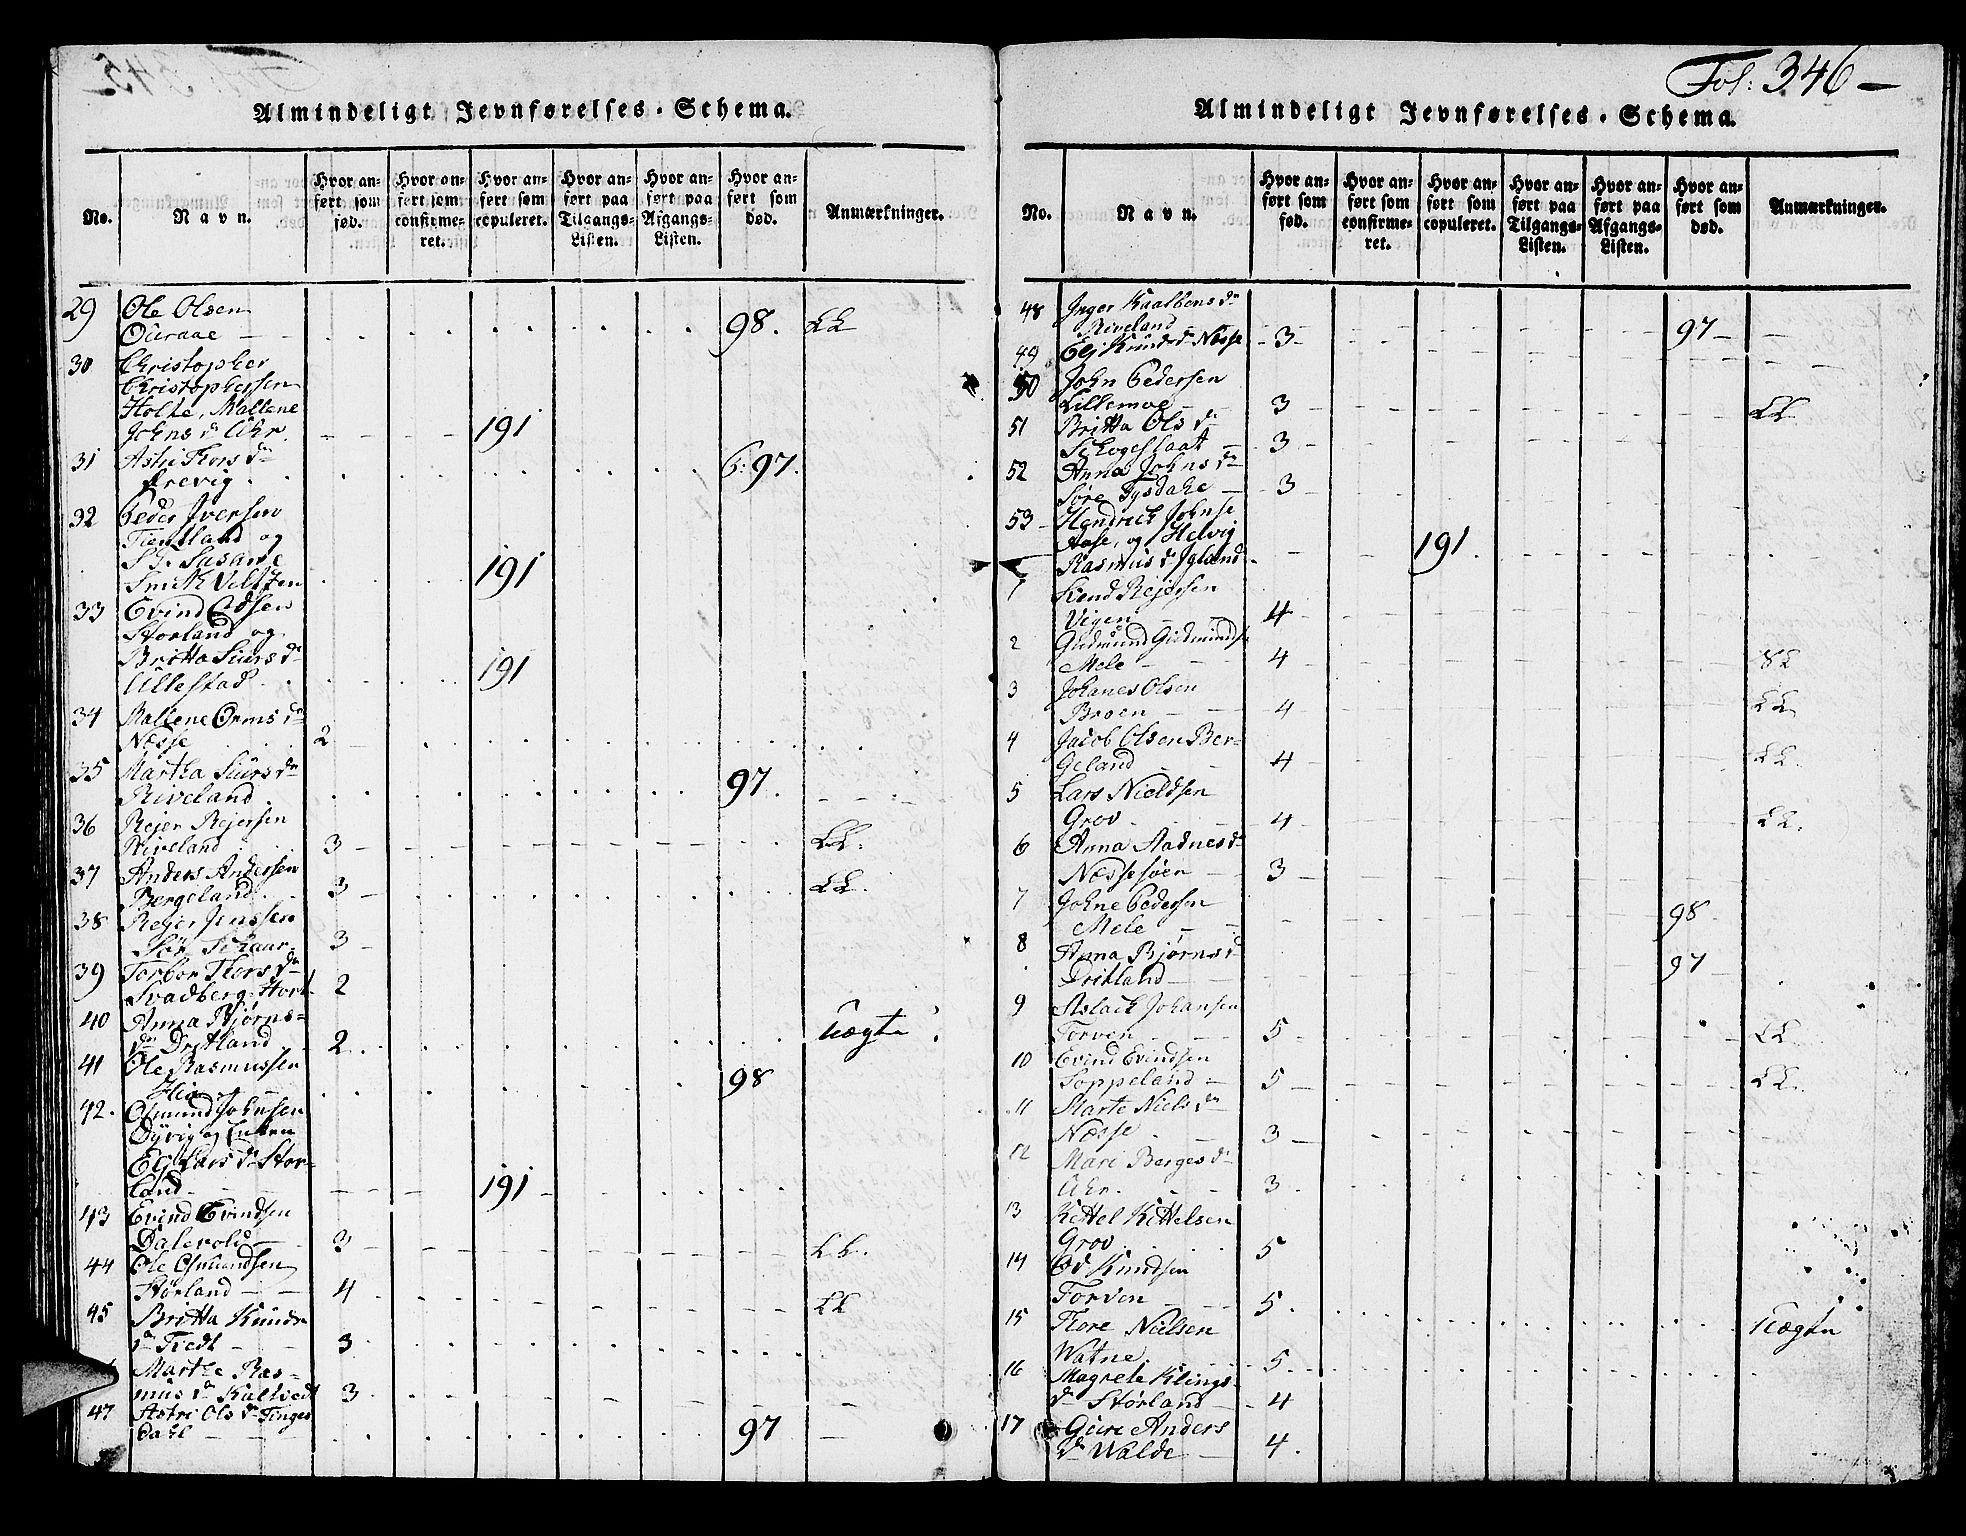 Almindeligt Jevnførelses-Schema.
No. Navn. Hvor anført som fød. Hvor anført som confirmeret. Hvor anført som copuleret. Hvor anført paa Tilgangs-Listen. Hvor anført paa Afgangs-Listen. Hvor anført som død. Anmærkninger.
29 Ole Olsen
98. LL
30 Christopher
Christophersen
Holte, Mallene
Johns dr Uhr. 191
31 Thors dr
6. 97.
32 Peder Iversen
og
Susane
191
33 Evind
Storland og
Britta Siurs dr
Ullestad 191
34 Mallene Orms dr
Næsse 2
35 Martha Siurs dr
Riveland 97.
36 Rejer Rejersen
Riveland 3 LL.
37 Anders Andersen
Bergeland 3 LL.
38 Rejer
3
39 Torbor Thors dr
2
40 Anna Bjørns-
dr Dritland 2 Uægte
41 Ole Rasmussen
98
42. Osmund Johnsen
og Enken
Eli Lars dr Stor-
land 191
43 Evind Evindsen
Dalevold 3 LL.
44 Ole Osmundsen
Størland 4 LL
45 Britta Knuds
dr Tiedt 3
Marthe Ras-
mus dr 3
47 Astri Ols dr Tinges
Dahl 97
Fol: 346
Almindeligt Jevnførelses-Schema.
No. Navn. Hvor anført som fød. Hvor anført som confirmeret. Hvor anført som copuleret. Hvor anført paa Tilgangs-Listen. Hvor anført paa Afgangs-Listen. Hvor anført som død. Anmærkninger.
48 Inger Kaalbens dr
Riveland 97
49 Eli Knuds dr Næsse 3
50 John Pedersen
Lillemoe 3 LL.
51 Britta Ols dr
3
52 Anna Johns dr
Søre Tysdahl 3
53 Hendrich Johns
Aase, og Helvig
Rasmus dr Igland 191.
1 Rejersen
Vigen 4
2 Gudmund Gudmunds
Mele 4
3 Johanes Olsen
Broen 4 LL
4 Jacob Olsen Ber-
geland 4 LL.
5 Lars Nieldsen
Grov 4 LL.
6 Anna Aadnes dr
Næssesøen 3
7 Johne Pedersen
Mele 98.
8 Anna Bjørns dr
Dritland 97
9 Aslach Johansen
Torven 5 LL
10 Evind Evindsen
Soppeland 5 LL.
11 Marte Niels dr
Næsse 3
12 Mari Berges dr
Uhr. 3
13 Kittel Kittelsen
Grov 5
14 Od Knudsen
Torven 5.
15 Thore Nielsen Uægte
Watne 5
16 Magrete Klings
dr Størland 4
17 Guri Anders
dr Walde 4.